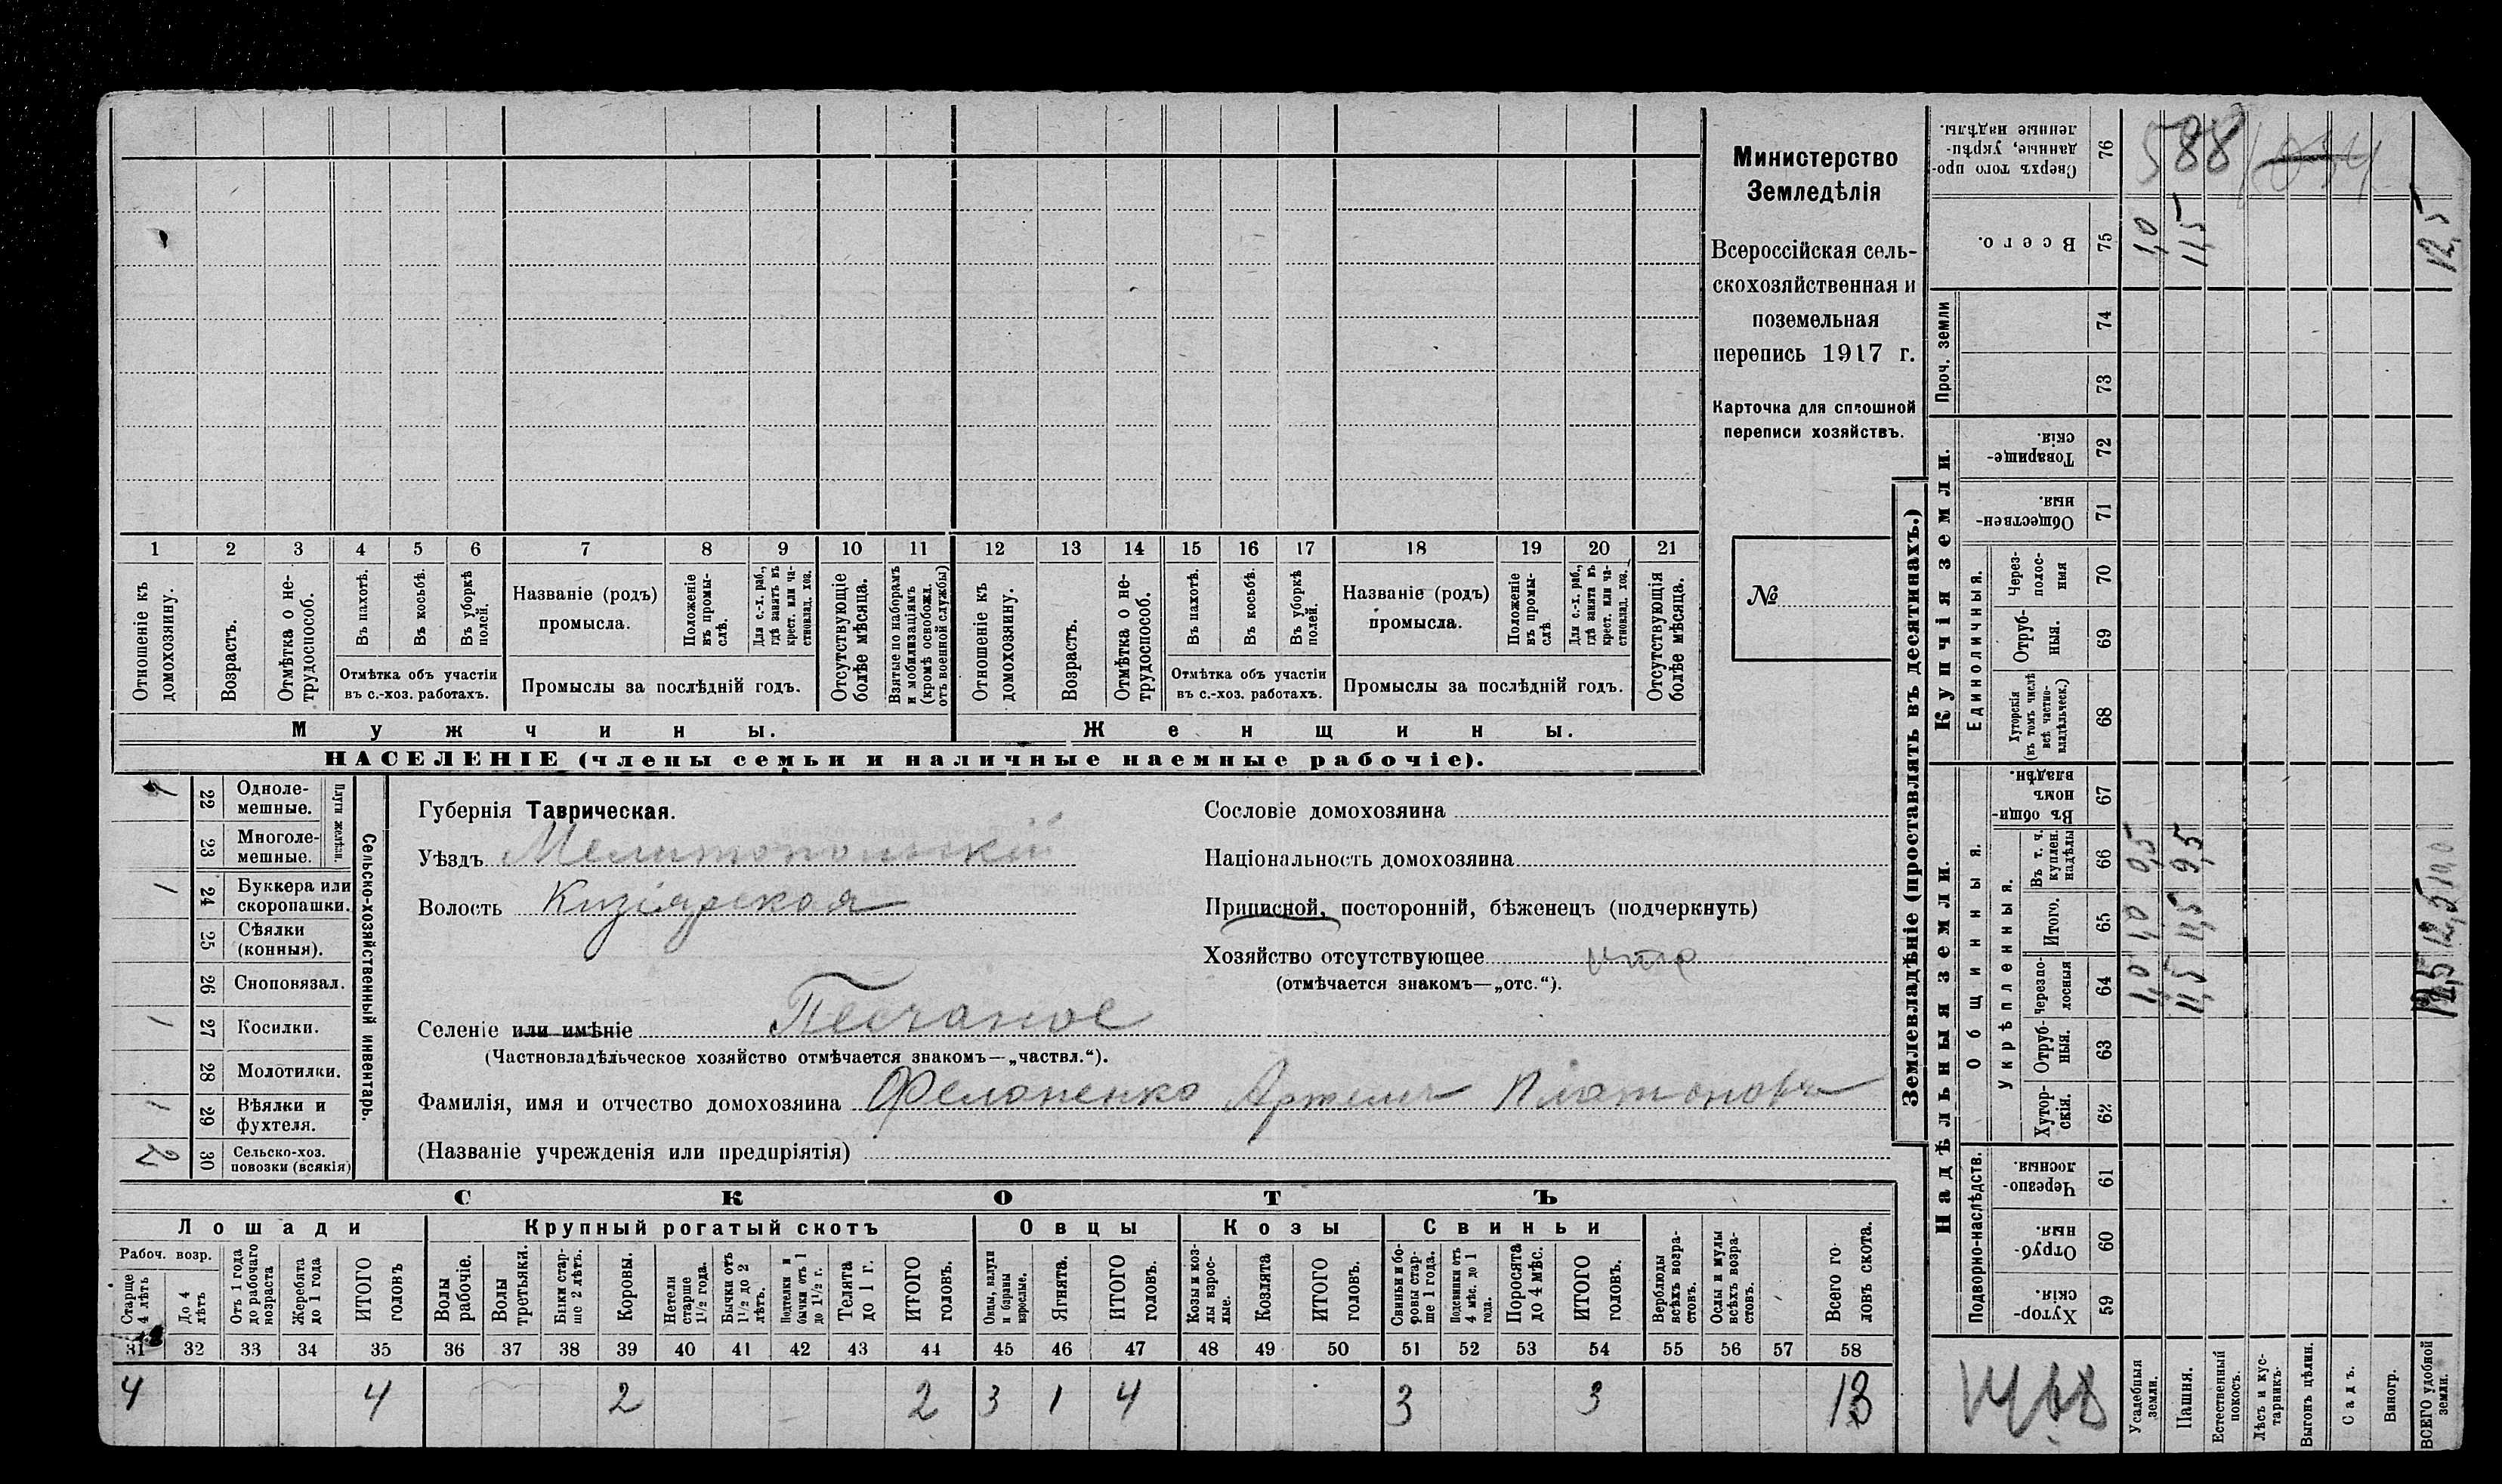 Министерство
Земледѣлія
Всероссійская сель-
скохозяйственная и
поземельная
перепись 1917 г.
Карточка для сплошной
переписи хозяйствъ.
№
1 2 3 4 5 6 7 8 9 10 11 12 13 14 15 16 17 18 19 20 21
Отношеніе къ домохозяину.
Возрастъ.
Отмѣтка о не-трудоспособ.
Въ пахотѣ.
Въ косьбѣ.
Въ уборкѣ полей.
Отмѣтка объ участіи
въ с.-хоз. работахъ.
Названіе (родъ)
промысла.
Положеніе въ промы-слѣ.
Для с.-х. раб., гдѣ занятъ въ крест. или ча-стновлад. хоз.
Промыслы за послѣдній годъ.
Отсутствующіе болѣе мѣсяца.
Взятые по наборамъ и мобилизаціямъ (кромѣ освобожд. отъ военной службы)
Отношеніе къ домохозяину.
Возрастъ.
Отмѣтка о не-трудоспособ.
Въ пахотѣ.
Въ косьбѣ.
Въ уборкѣ полей.
Отмѣтка объ участіи
въ с.-хоз. работахъ.
Названіе (родъ)
промысла.
Положеніе въ промы-слѣ
Для с.-х. раб., гдѣ занята въ крест. или ча-стновлад. хоз.
Промыслы за послѣдній годъ.
Отсутствующія болѣе мѣсяца.
Мужчины.
Женщины.
НАСЕЛЕНІЕ (члены семьи и наличные наемные рабочіе).
Сельско-хозяйственный инвентарь.
Плуги желѣзн.
1 22 Одноле-мешные.
23 Многоле-мешные.
1 24 Буккера или скоропашки.
25 Сѣялки (конныя).
26 Сноповязал.
1 27 Косилки.
28 Молотилки.
1 29 Вѣялки и фухтеля.
2 30 Сельско-хоз. повозки (всякія)
Губернія Таврическая.
Уѣздъ Мелитопольскій
Волость Кизіярская
Сословіе домохозяина
Національность домохозяина
Приписной, посторонній, бѣженецъ (подчеркнуть)
Хозяйство отсутствующее
(отмѣчается знакомъ—„отс.“).
Селеніе или имѣніе Песчаное
(Частновладѣльческое хозяйство отмѣчается знакомъ—„частвл.“).
Фамилія, имя и отчество домохозяина Феланенко Артемъ Платоновъ
(Названіе учрежденія или предпріятія)
СКОТЪ
Лошади Крупный рогатый скотъ Овцы Козы Свиньи
Рабоч. возр.
Старше 4 лѣтъ
До 4 лѣтъ
Отъ 1 года до рабочаго возраста
Жеребята до 1 года
ИТОГО головъ
Волы рабочіе.
Волы третьяки.
Быки стар-ше 2 лѣтъ.
Коровы.
Нетели старше 1½ года.
Бычки отъ 1½ до 2 лѣтъ.
Подтелки и бычки отъ 1 до 1½ г.
Телята до 1 г.
ИТОГО головъ.
Овцы, валухи и бараны взрослые.
Ягнята.
ИТОГО головъ.
Козы и коз-лы взрос-лые.
Козлята
ИТОГО головъ.
Свиньи и бо-ровы стар-ше 1 года.
Подсвинки отъ 4 мѣс. до 1 года.
Поросята до 4 мѣс.
ИТОГО головъ.
Верблюды всѣхъ возра-стовъ.
Ослы и мулы всѣхъ возра-стовъ.
Всего го-ловъ скота.
31 32 33 34 35 36 37 38 39 40 41 42 43 44 45 46 47 48 49 50 51 52 53 54 55 56 57 58
4 4 2 2 3 1 4 3 3 13
Землевладѣніе (проставлять въ десятинахъ.)
Надѣльныя земли.
Купчія земли.
Проч. земли
Подворно-наслѣдств.
Общинныя.
Укрѣпленныя.
Единоличныя.
59 Хутор-скія.
60 Отруб-ныя.
61 Черезпо-лосныя.
62 Хутор-скія.
63 Отруб-ныя.
64 Черезпо-лосныя
65 Итого.
66 Въ т. ч. куплен. надѣлы
67 Въ общи-номъ владѣн.
68 Хуторскія (въ томъ числѣ всѣ частно-владѣльческ.)
69 Отруб-ныя.
70 Через-полос-ныя
71 Обществен-ныя.
72 Товарище-скія.
73
74
75 Всего.
76 Сверхъ того про-данные, укрѣп-ленные надѣлы.
Усадебныя земли. 1,0 1,0 0,5 1,0
Пашня. 11,5 11,5 9,5 11,5
Естественный покосъ.
Лѣсъ и кус-тарникъ.
Выгонъ цѣлин.
Садъ.
Виногр.
ВСЕГО удобной земли. 12,5 12,5 10,0 12,5
588